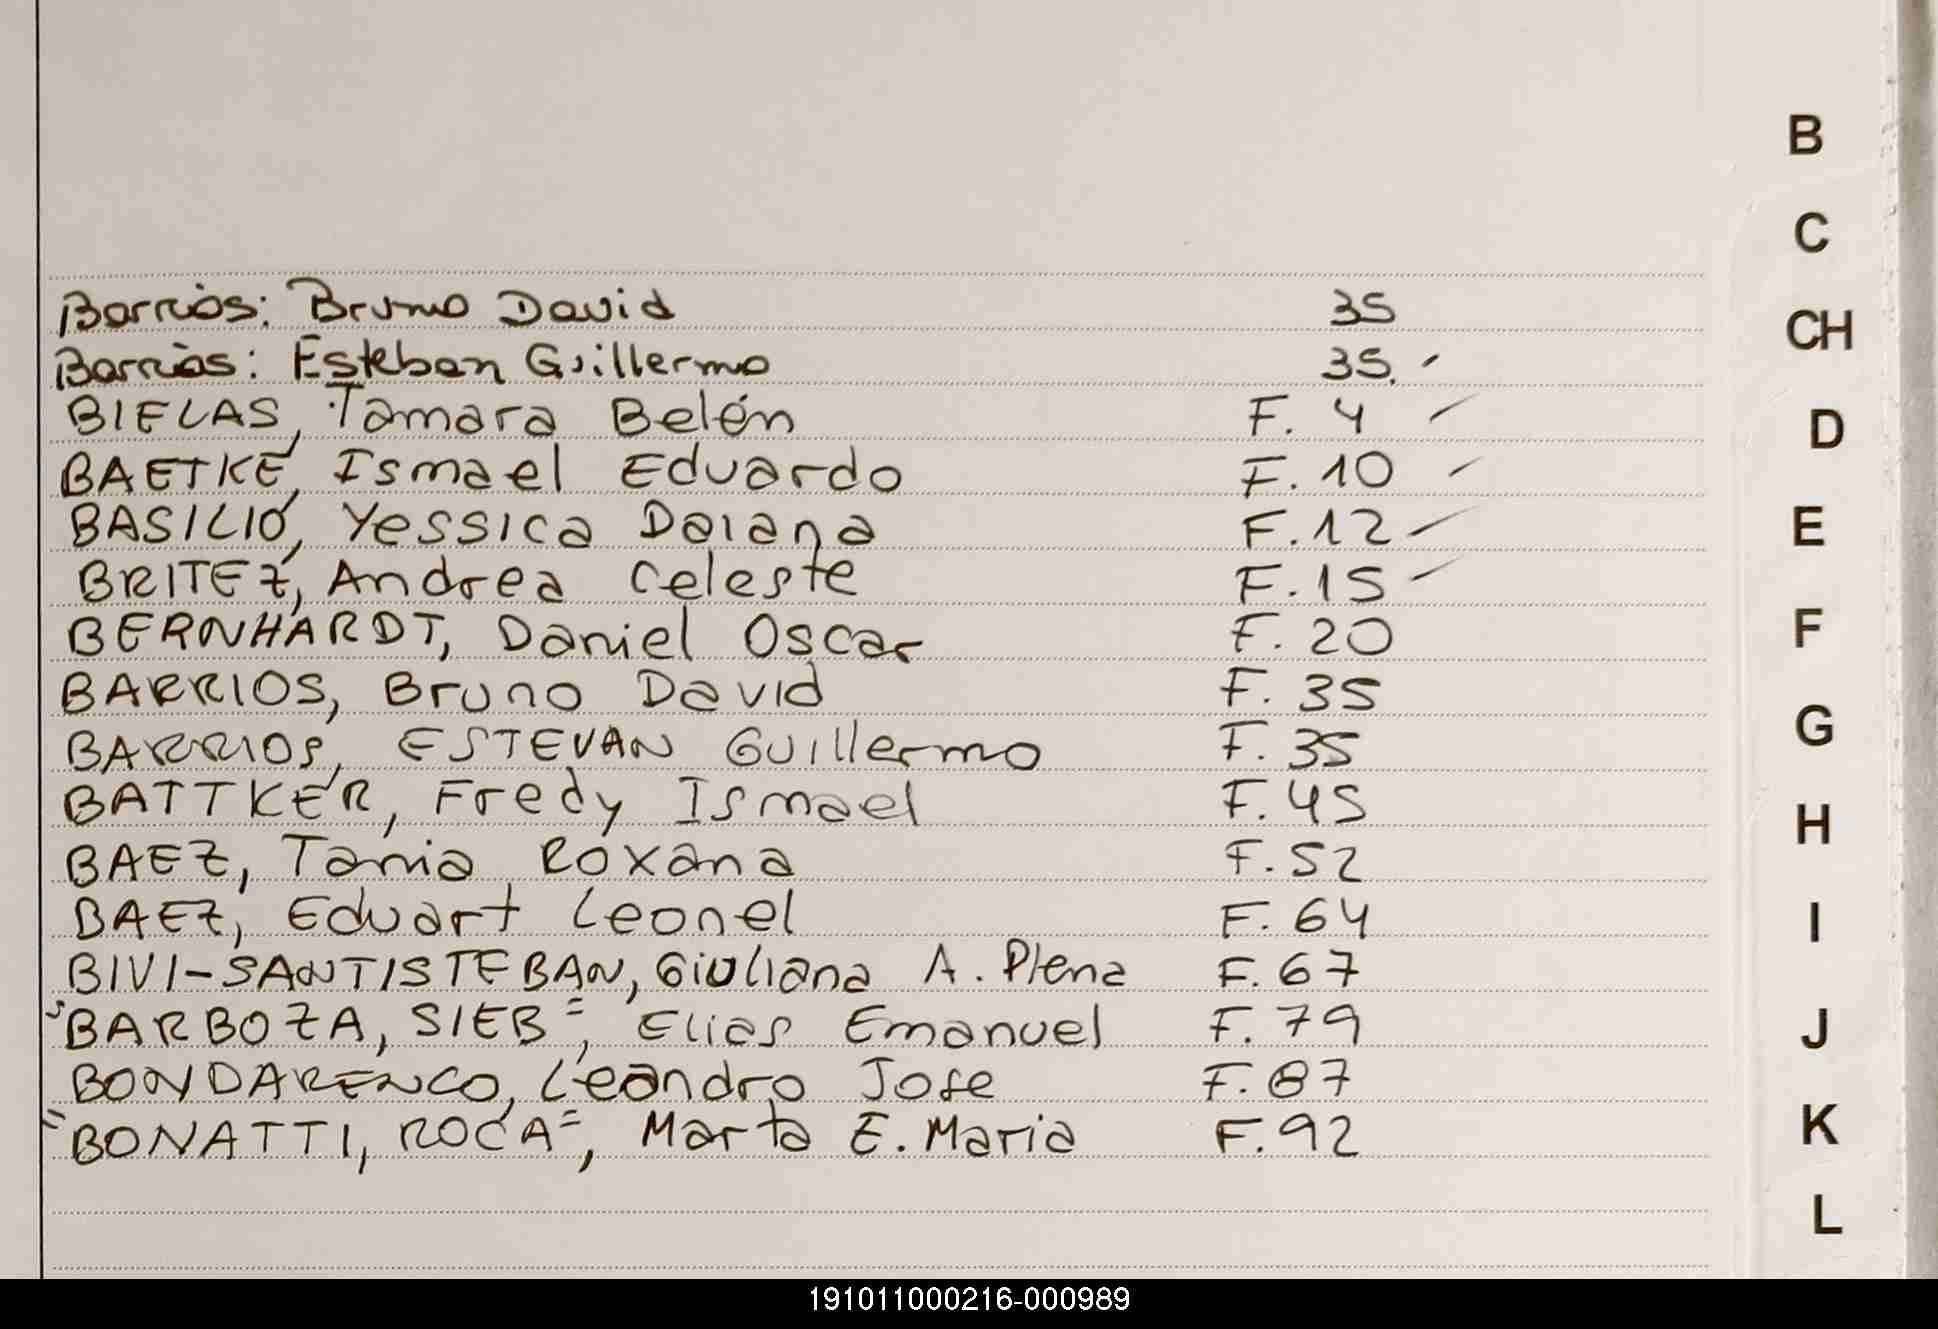 Barrios: Bruno David 35
Barrios: Esteban Guillermo 35.
BIELAS, Tamara Belén F. 4
BAETKE, Ismael Eduardo F. 10
BASILIO, Yessica Daiana F. 12
BRITEZ, Andrea Celeste F. 15
BERNHARDT, Daniel Oscar F. 20
BARRIOS, Bruno David F. 35
BARRIOS, ESTEVAN Guillermo F. 35
BATTKER, Fredy Ismael F. 45
BAEZ, Tania Roxana F. 52
BAEZ, Eduart Leonel F. 64
BIVI-SANTISTEBAN, Giuliana A. Plena F. 67
"BARBOZA, SIEB", Elias Emanuel F. 79
BONDARENCO, Leandro Jose F. 87
"BONATTI, ROCA", Marta E. Maria F. 92
B
C
CH
D
E
F
G
H
I
J
K
L
191011000216-000989